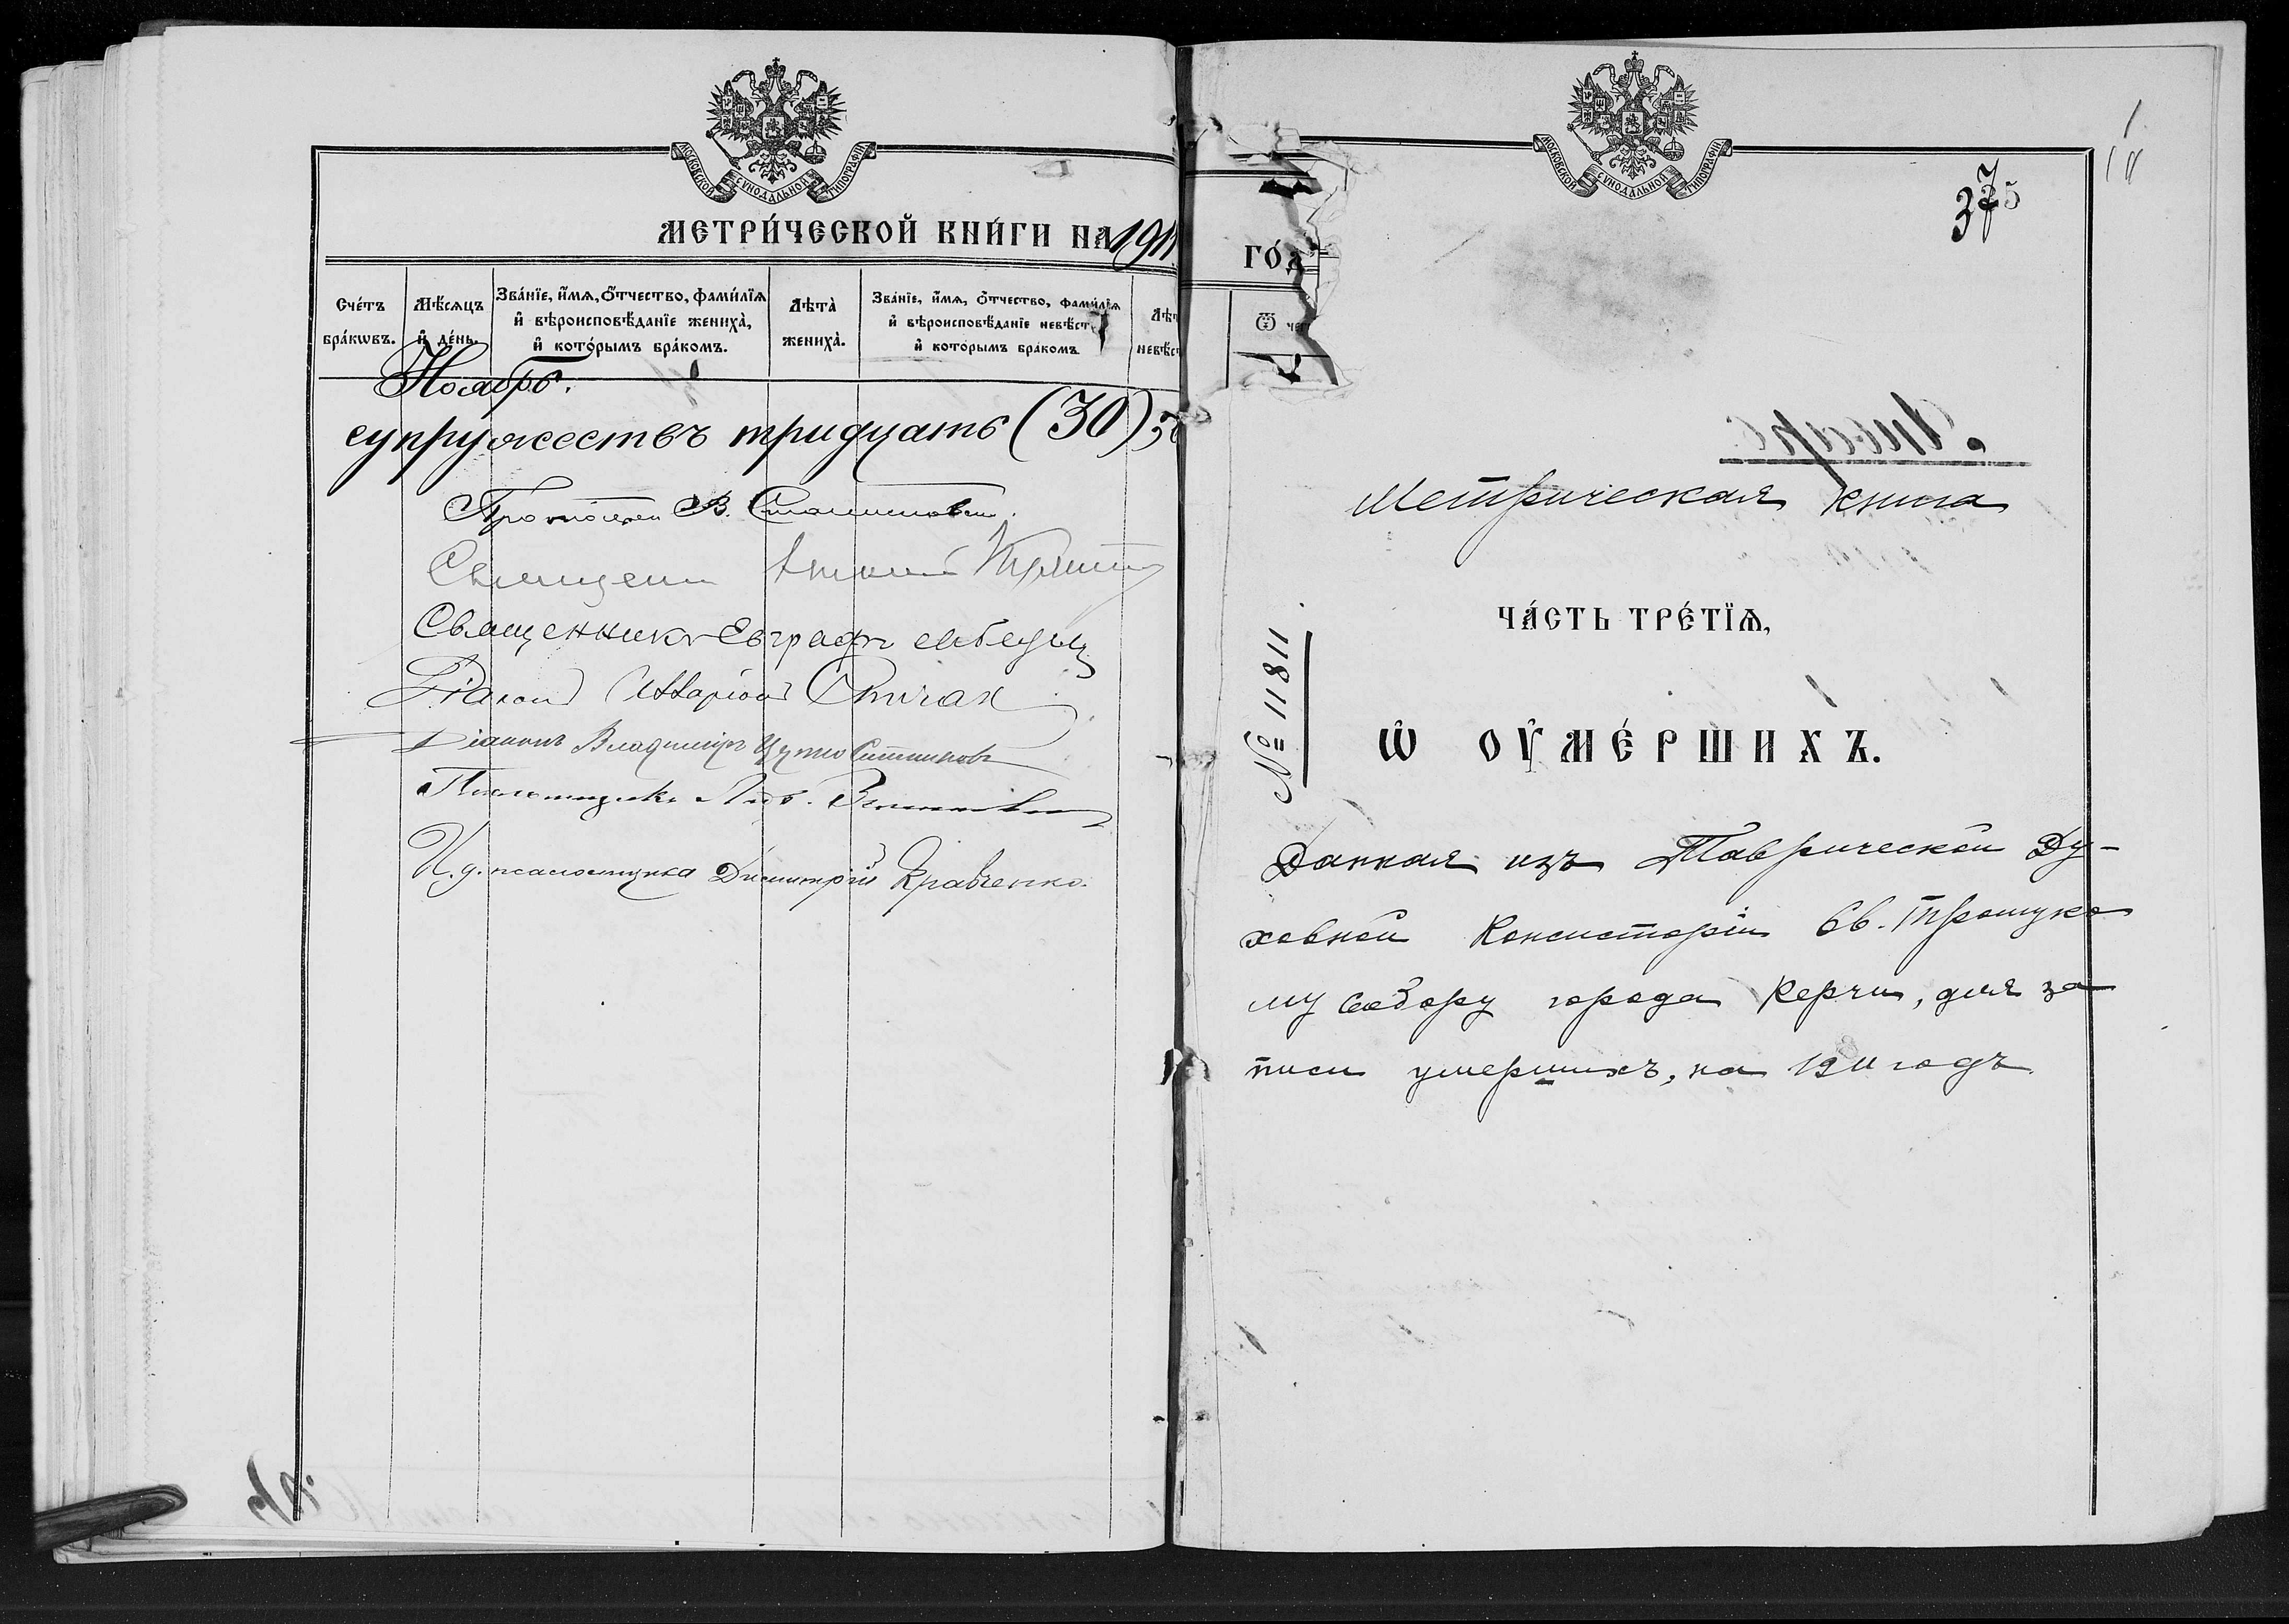 МОСКОВСКОЙ СѴНОДАЛЬНОЙ ТИПОГРАФІИ
МЕТРИ́ЧЕСКОЙ КНИ́ГИ НА 1911
Сче́тъ бра́кѡвъ.
Мѣ́сяцъ и҆ де́нь.
Зва́нїе, и҆́мѧ, ѻ҆́тчество, фами́лїѧ и҆ вѣроисповѣ́данїе жениха̀, и҆ кото́рымъ бра́комъ.
Лѣта̀ жениха̀.
Зва́нїе, и҆́мѧ, ѻ҆́тчество, фами́лїѧ и҆ вѣроисповѣ́данїе невѣ́ст
и҆ кото́рымъ бра́комъ
Ноябрь.
супружествъ тридцать (30)
Протоіерей В.
Священ
Священникъ Евграфъ
Діаконъ Иларіонъ Спичак
Діаконъ Владиміръ
Псаломщикъ
И. д. псаломщика Димитрій Кравченко.
ГО́Д
МОСКОВСКОЙ СѴНОДАЛЬНОЙ ТИПОГРАФІИ
375
Метрическая книга
ЧА́СТЬ ТРЕ́ТЇѦ,
Ѡ҆ ОУ҆МЕ́РШИХЪ.
№ 11811.
Данная изъ Таврической Ду-
ховной Консисторіи Св. Троицко
му Собору города Керчи, для за
писи умершихъ, на 1911 годъ